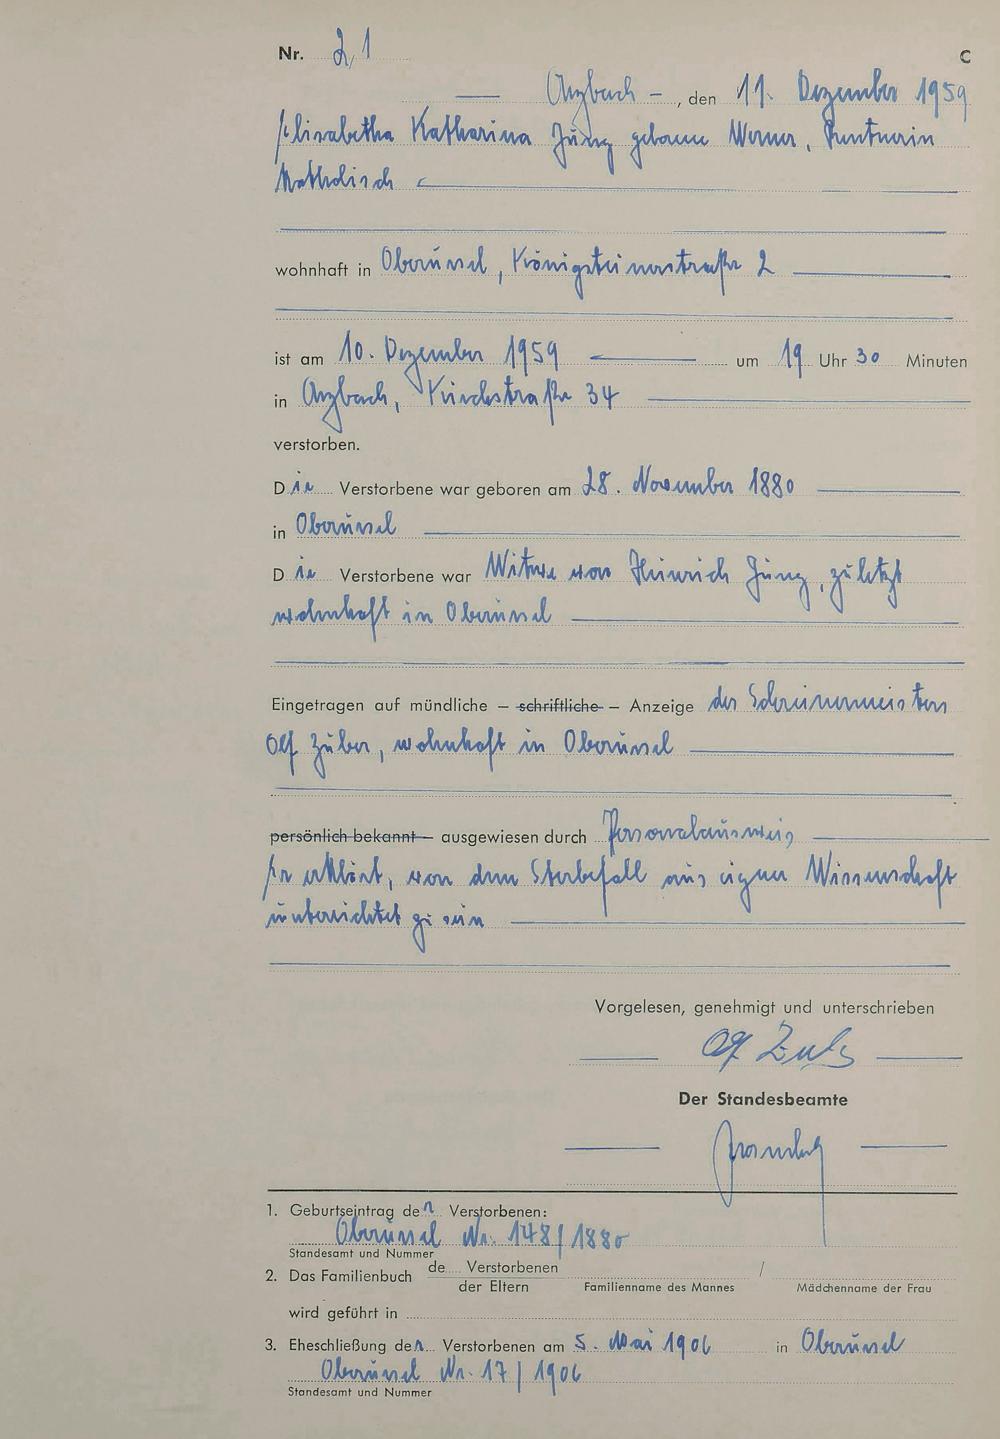 Nr. 21 C
Arzbach, den 11. Dezember 1959
Elisabetha Katharina Jung geborene Werner, Rentnerin
Katholisch
wohnhaft in Oberursel, Königsteinerstraße 2
ist am 10. Dezember 1959 um 19 Uhr 30 Minuten
in Arzbach, Kirchstraße 34
verstorben.
Die Verstorbene war geboren am 28. November 1880
in Oberursel
Die Verstorbene war Witwe von Heinrich Jung, zuletzt
wohnhaft in Oberursel
Eingetragen auf mündliche – schriftliche – Anzeige des Schreinermeisters
Zuber, wohnhaft in Oberursel
persönlich bekannt – ausgewiesen durch Personalausweis
Er erklärt, von dem Sterbefall aus eigner Wissenschaft
unterrichtet zu sein
Vorgelesen, genehmigt und unterschrieben
Der Standesbeamte
1. Geburtseintrag der Verstorbenen:
Oberursel Nr. 148/1880
Standesamt und Nummer
2. Das Familienbuch de Verstorbenen /
der Eltern Familienname des Mannes Mädchenname der Frau
wird geführt in
3. Eheschließung der Verstorbenen am 5. Mai 1906 in Oberursel
Oberursel Nr. 17/1906
Standesamt und Nummer